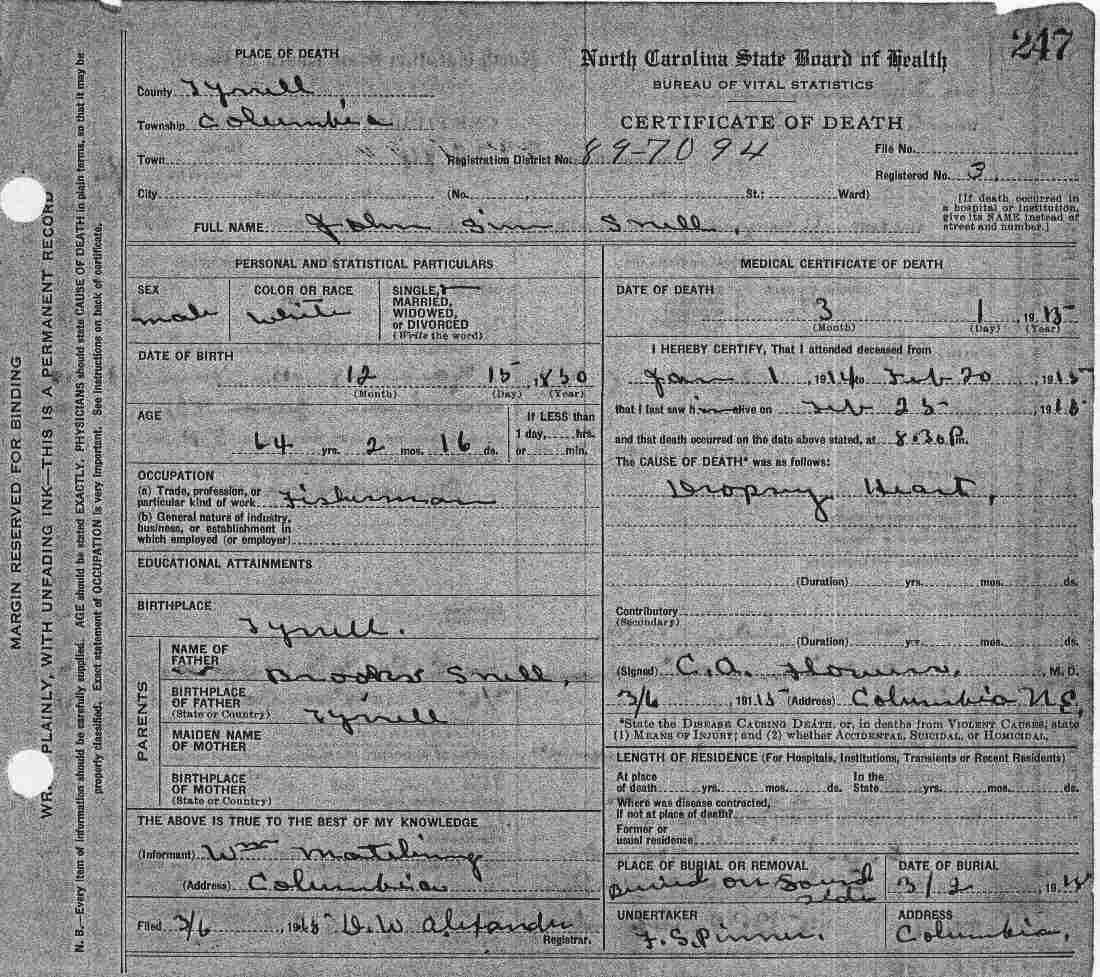 247
PLACE OF DEATH
County Tyrrell
Township Columbia
Town
City
North Carolina State Board of Health
BUREAU OF VITAL STATISTICS
CERTIFICATE OF DEATH
Registration District No. 89-7094
File No.
Registered No. 3
(No. St.: Ward)
[If death occurred in
a hospital or institution,
give its NAME instead of
street and number.]
FULL NAME John Sim Snell,
PERSONAL AND STATISTICAL PARTICULARS
SEX
male
COLOR OR RACE
White
SINGLE,
MARRIED,
WIDOWED,
or DIVORCED
(Write the word)
DATE OF BIRTH
12 15, 1850
(Month) (Day) (Year)
AGE
64 yrs. 2 mos. 16 ds.
If LESS than
1 day, hrs.
or min.
OCCUPATION
(a) Trade, profession, or
particular kind of work Fisherman
(b) General nature of industry,
business, or establishment in
which employed (or employer)
EDUCATIONAL ATTAINMENTS
BIRTHPLACE
Tyrrell.
PARENTS
NAME OF
FATHER
Brooks Snell,
BIRTHPLACE
OF FATHER
(State or Country) Tyrrell
MAIDEN NAME
OF MOTHER
BIRTHPLACE
OF MOTHER
(State or Country)
THE ABOVE IS TRUE TO THE BEST OF MY KNOWLEDGE
(Informant) Wm
(Address) Columbia
Filed 3/6, 1915 Alexander
Registrar.
MEDICAL CERTIFICATE OF DEATH
DATE OF DEATH
3 1, 1915
(Month) (Day) (Year)
I HEREBY CERTIFY, That I attended deceased from
Jan 1, 1914 to Feb 20, 1915
that I last saw him alive on Feb 25, 1915
and that death occurred on the date above stated, at 8.30 P.m.
The CAUSE OF DEATH* was as follows:
Dropsy Heart,
(Duration) yrs. mos. ds.
Contributory
(Secondary)
(Duration) yrs. mos. ds.
(Signed) C. A. Flowers, M. D.
3/6, 1915 (Address) Columbia N.C.
*State the DISEASE CAUSING DEATH, or, in deaths from VIOLENT CAUSES, state
(1) MEANS OF INJURY; and (2) whether ACCIDENTAL, SUICIDAL, or HOMICIDAL.
LENGTH OF RESIDENCE (For Hospitals, Institutions, Transients or Recent Residents)
At place
of death yrs. mos. ds.
In the
State yrs. mos. ds.
Where was disease contracted,
if not at place of death?
Former or
usual residence
PLACE OF BURIAL OR REMOVAL
Buried on Sound
side
DATE OF BURIAL
3/2, 1915
UNDERTAKER
F. S. Pinner.
ADDRESS
Columbia,
MARGIN RESERVED FOR BINDING
PLAINLY, WITH UNFADING INK—THIS IS A PERMANENT RECORD
N. B.—Every item of information should be carefully supplied. AGE should be stated EXACTLY. PHYSICIANS should state CAUSE OF DEATH in plain terms, so that it may be
properly classified. Exact statement of OCCUPATION is very important. See instructions on back of certificate.